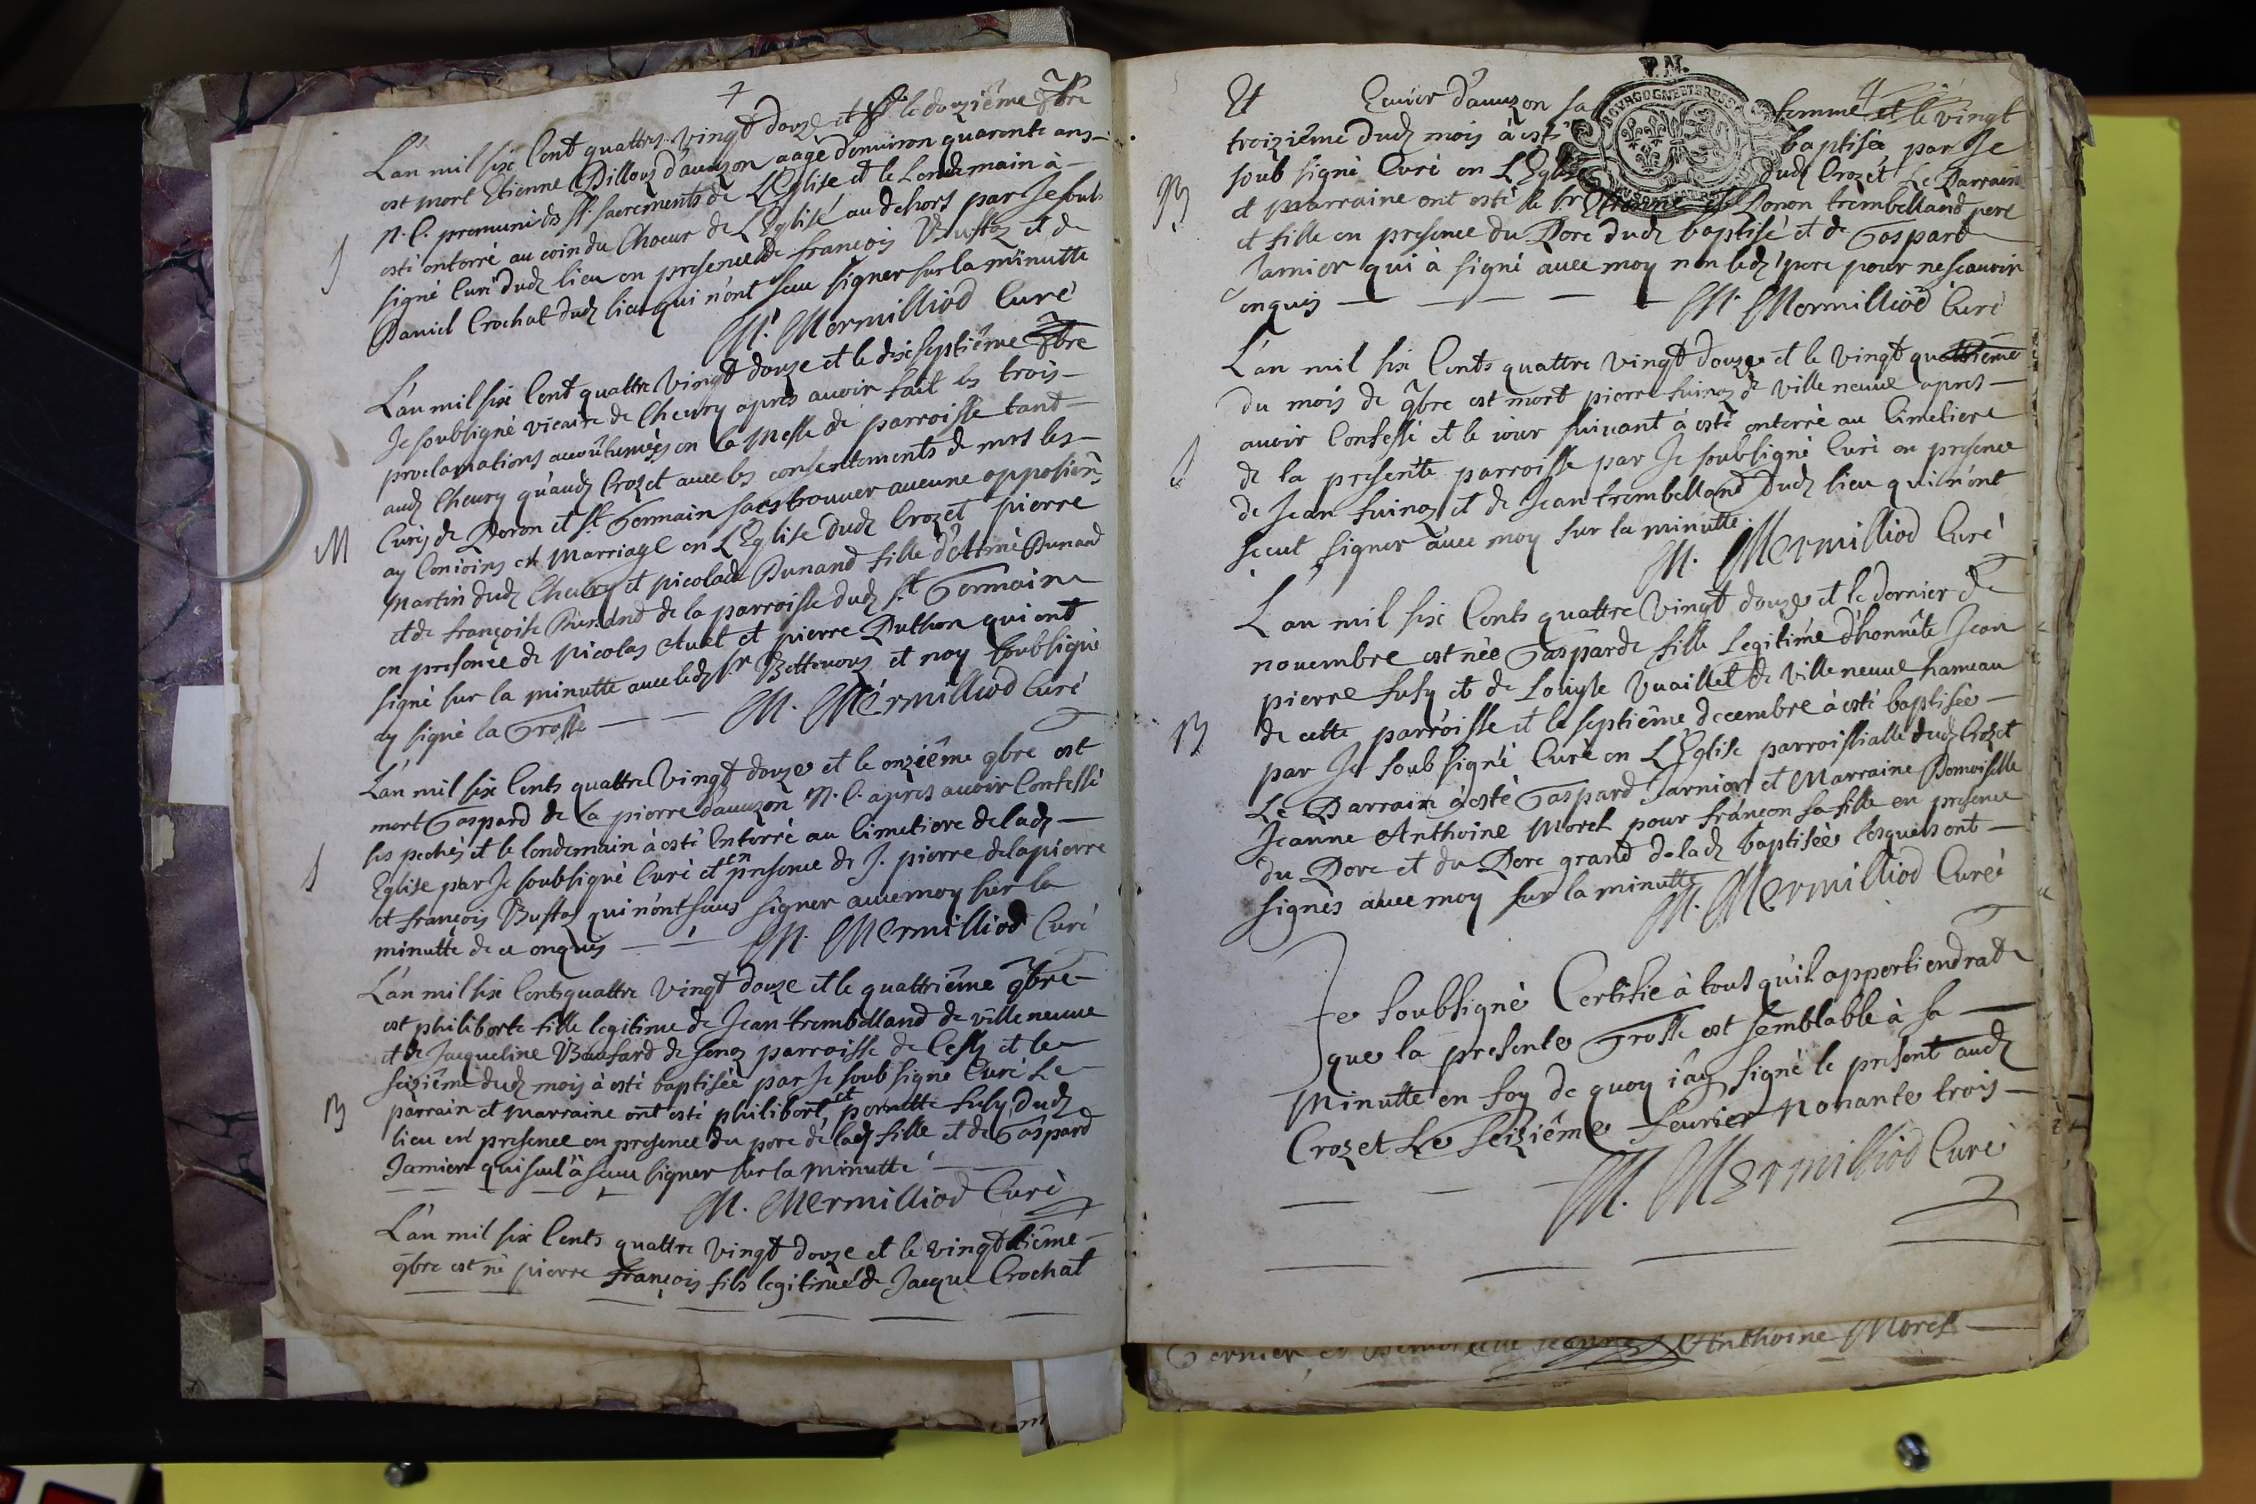 7
L'an mil six Cent quattre vingt douze et le douziéme 7bre
est mort Etienne Pilloux d'auuzon aagé d'enuiron quarente ans
N. C. premuni des SS. sacrements de L'Eglise et le Lendemain à
esté enterré au coin du Choeur de L'Eglise au dehors par Je soub
S
signé Curé dudz lieu en presence de françois Bussoz et de
Daniel Crochat dudz lieu qui n'ont sceu signer sur la minutte
M. Mermilliod Curé
L'an mil six Cent quattre vingt douze et le dixseptiéme 7bre
Je soubsigné vicaire de Cheury apres auoir fait les trois
proclamations accoutumées en la Messe de parroisse tant
audz Cheury qu'audz Crozet auec les consentements de mrs les
Curés de et St Germain sans trouuer aucune opposion
M
ay Conioins en Marriage en L'Eglise dudz Crozet pierre
Martin dudz Cheury et nicolade Dunand fille d'Aimé Dunand
et de françoise Durand de la parroisse dudz St Germain
en presence de nicolas et pierre Duthon qui ont
signé sur la minutte auec ledz Sr et moy soubsigné
ay signé la Grosse
M. Mermilliod Curé
L'an mil six Cents quattre vingt douze et le onziéme 9bre est
mort Gaspard de la pierre d'auuzon N. C. apres auoir Confessé
ses pechés et le lendemain à esté Enterré au Cimetiere deladz
S
Eglise par Je soubsigné Curé et en presence de J. pierre delapierre
et françois Bussoz qui n'ont sceus signer auec moy sur la
minutte de ce enquis
M. Mermilliod Curé
L'an mil six Cents quattre vingt douze et le quattriéme 9bre
est philiberte fille legitime de Jean trembelland de ville neuue
et de Jacqueline de parroisse de Cessy et le
seiziéme dudz mois à esté baptisée par Je soubsigné Curé Le
B
parrain et Marraine ont esté philibert et pernette fusy dudz
lieu en presence en presence du pere de ladz fille et de Gaspard
Jarnier qui seul à sceu signer sur la minutte
M. Mermilliod Curé
L'an mil six Cents quattre vingt douze et le vingttiéme
9bre est né pierre françois fils legitime de Jacque Crochat
P. M.
BOURGOGNE ET BRESSE
4
Et d'auuzon sa femme et le vingt
troiziéme dudz mois à esté baptisé par Je
soub signé Curé en L'Eglise dudz Crozet Le Parrain
B
et marraine ont esté le Sr trembelland pere
et fille en presence du Pere dudz baptisé et de Gaspard
Jarnier qui à signé auec moy non ledz pere pour ne scauoir
enquis
M. Mermilliod Curé
L'an mil six Cents quattre vingt douze et le vingt quattriéme
du mois de 9bre est mort pierre fuinoz de ville neuue apres
auoir Confessé et le iour suiuant à esté enterré au Cimetiere
S
de la presente parroisse par Je soubsigné Curé en presence
de Jean fuinoz et de Jean trembelland dudz lieu qui n'ont
sceut signer auec moy sur la minutte.
M. Mermilliod Curé
L'an mil six Cents quattre vingt douze et le dernier de
nouembre est née Gasparde fille Legitime d'honnête Jean
pierre fusy et de Loüyse Vuaillet de ville neuue hameau
de cette parroisse et le septiéme decembre à esté baptisée
B
par Je soub signé Curé en L'Eglise parroissialle dudz Crozet
Le Parrain à esté Gaspard Jarnier et Marraine Demoiselle
Jeanne Anthoine Morel pour françon sa fille en presence
du Pere et du Pere grand de ladz baptisée lesquels ont
signés auec moy sur la minutte
M. Mermilliod Curé
Je soubsigné Certifie à tous qu'il appertiendrat
que la presente Grosse est semblable à sa
Minutte en foy de quoy i'ay signé le present audz
Crozet Le Seiziéme feurier Nonante trois
M. Mermilliod Curé
Anthoine Morel